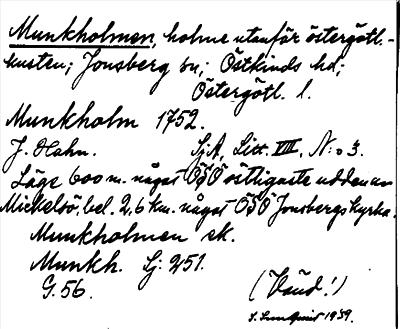 Munkholmen, holme utanför östergötl.-
kusten; Jonsberg sn; Östkinds hd;
Östergötl. l.
Munkholm 1752.
J. Hahn. SjA, Litt. VIII, N:o 3.
Läge 600 m. något OSO östligaste udden av
Mickelsö, bel. 2,6 km. något OSO Jonsbergs kyrka.
Munkholmen ek.
Munkh. Sj. 251.
G. 56. (Vänd!)
S. Lundquist 1939.